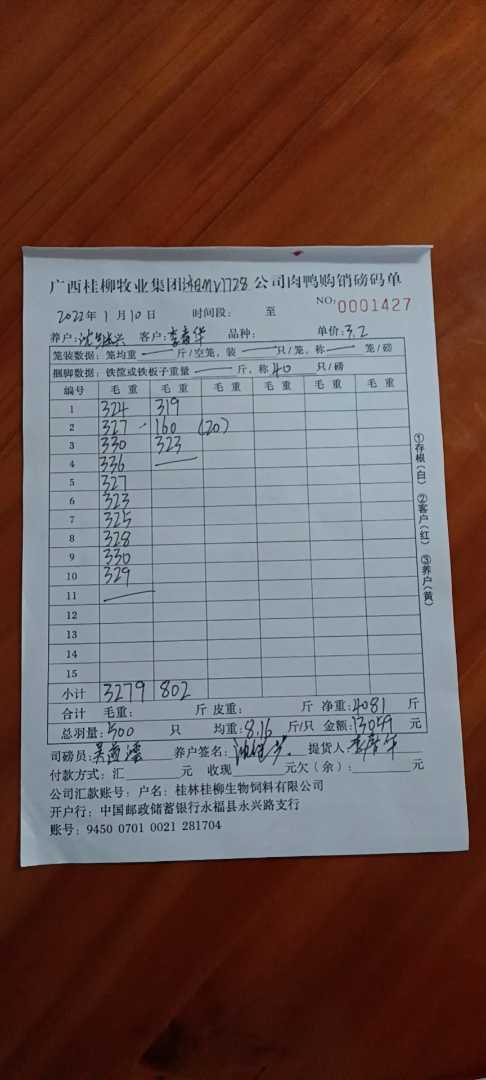 广西桂柳牧业集团湘BMV1728公司肉鸭购销磅码单
NO:0001427
2022年1月10日 时间段: 至
养户: 客户: 华 品种: 单价:3.2
笼装数据: 笼均重 — 斤/空笼, 装 — 只/笼, 称 — 笼/磅
捆脚数据: 铁筐或铁板子重量 — 斤, 称 40 只/磅
编号 毛重 毛重 毛重 毛重 毛重 毛重
1 324 319
2 327 160 (20)
3 330 323
4 336 —
5 327
6 323
7 325
8 328
9 330
10 329
11 —
12
13
14
15
小计 3279 802
合计 毛重: 斤 皮重: 斤 净重:4081 斤
总羽量:500 只 均重:8.16 斤/只 金额:13059 元
司磅员: 养户签名: 提货人:
付款方式: 汇 元 收现 元欠(余): 元
公司汇款账号: 户名: 桂林桂柳生物饲料有限公司
开户行: 中国邮政储蓄银行永福县永兴路支行
账号: 9450 0701 0021 281704
①存根(白) ②客户(红) ③养户(黄)